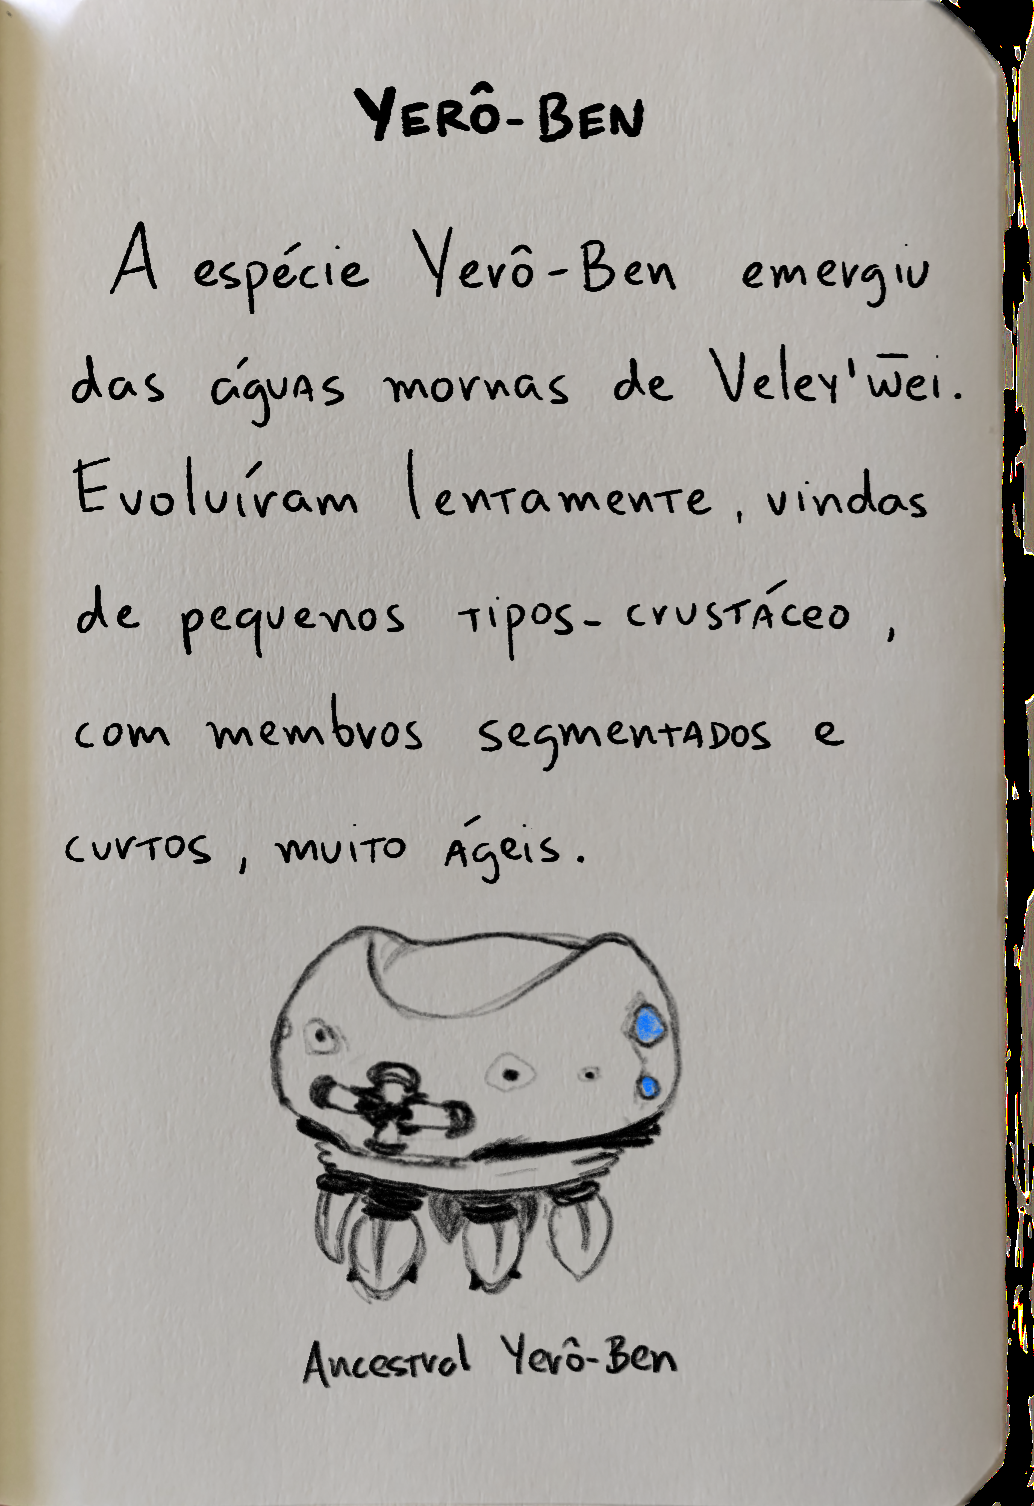 YERÔ-BEN
A espécie Yerô-Ben emergiu
das águas mornas de Veley'w̄ei.
Evoluíram lentamente, vindas
de pequenos tipos-crustáceo,
com membros segmentados e
curtos, muito ágeis.
Ancestral Yerô-Ben